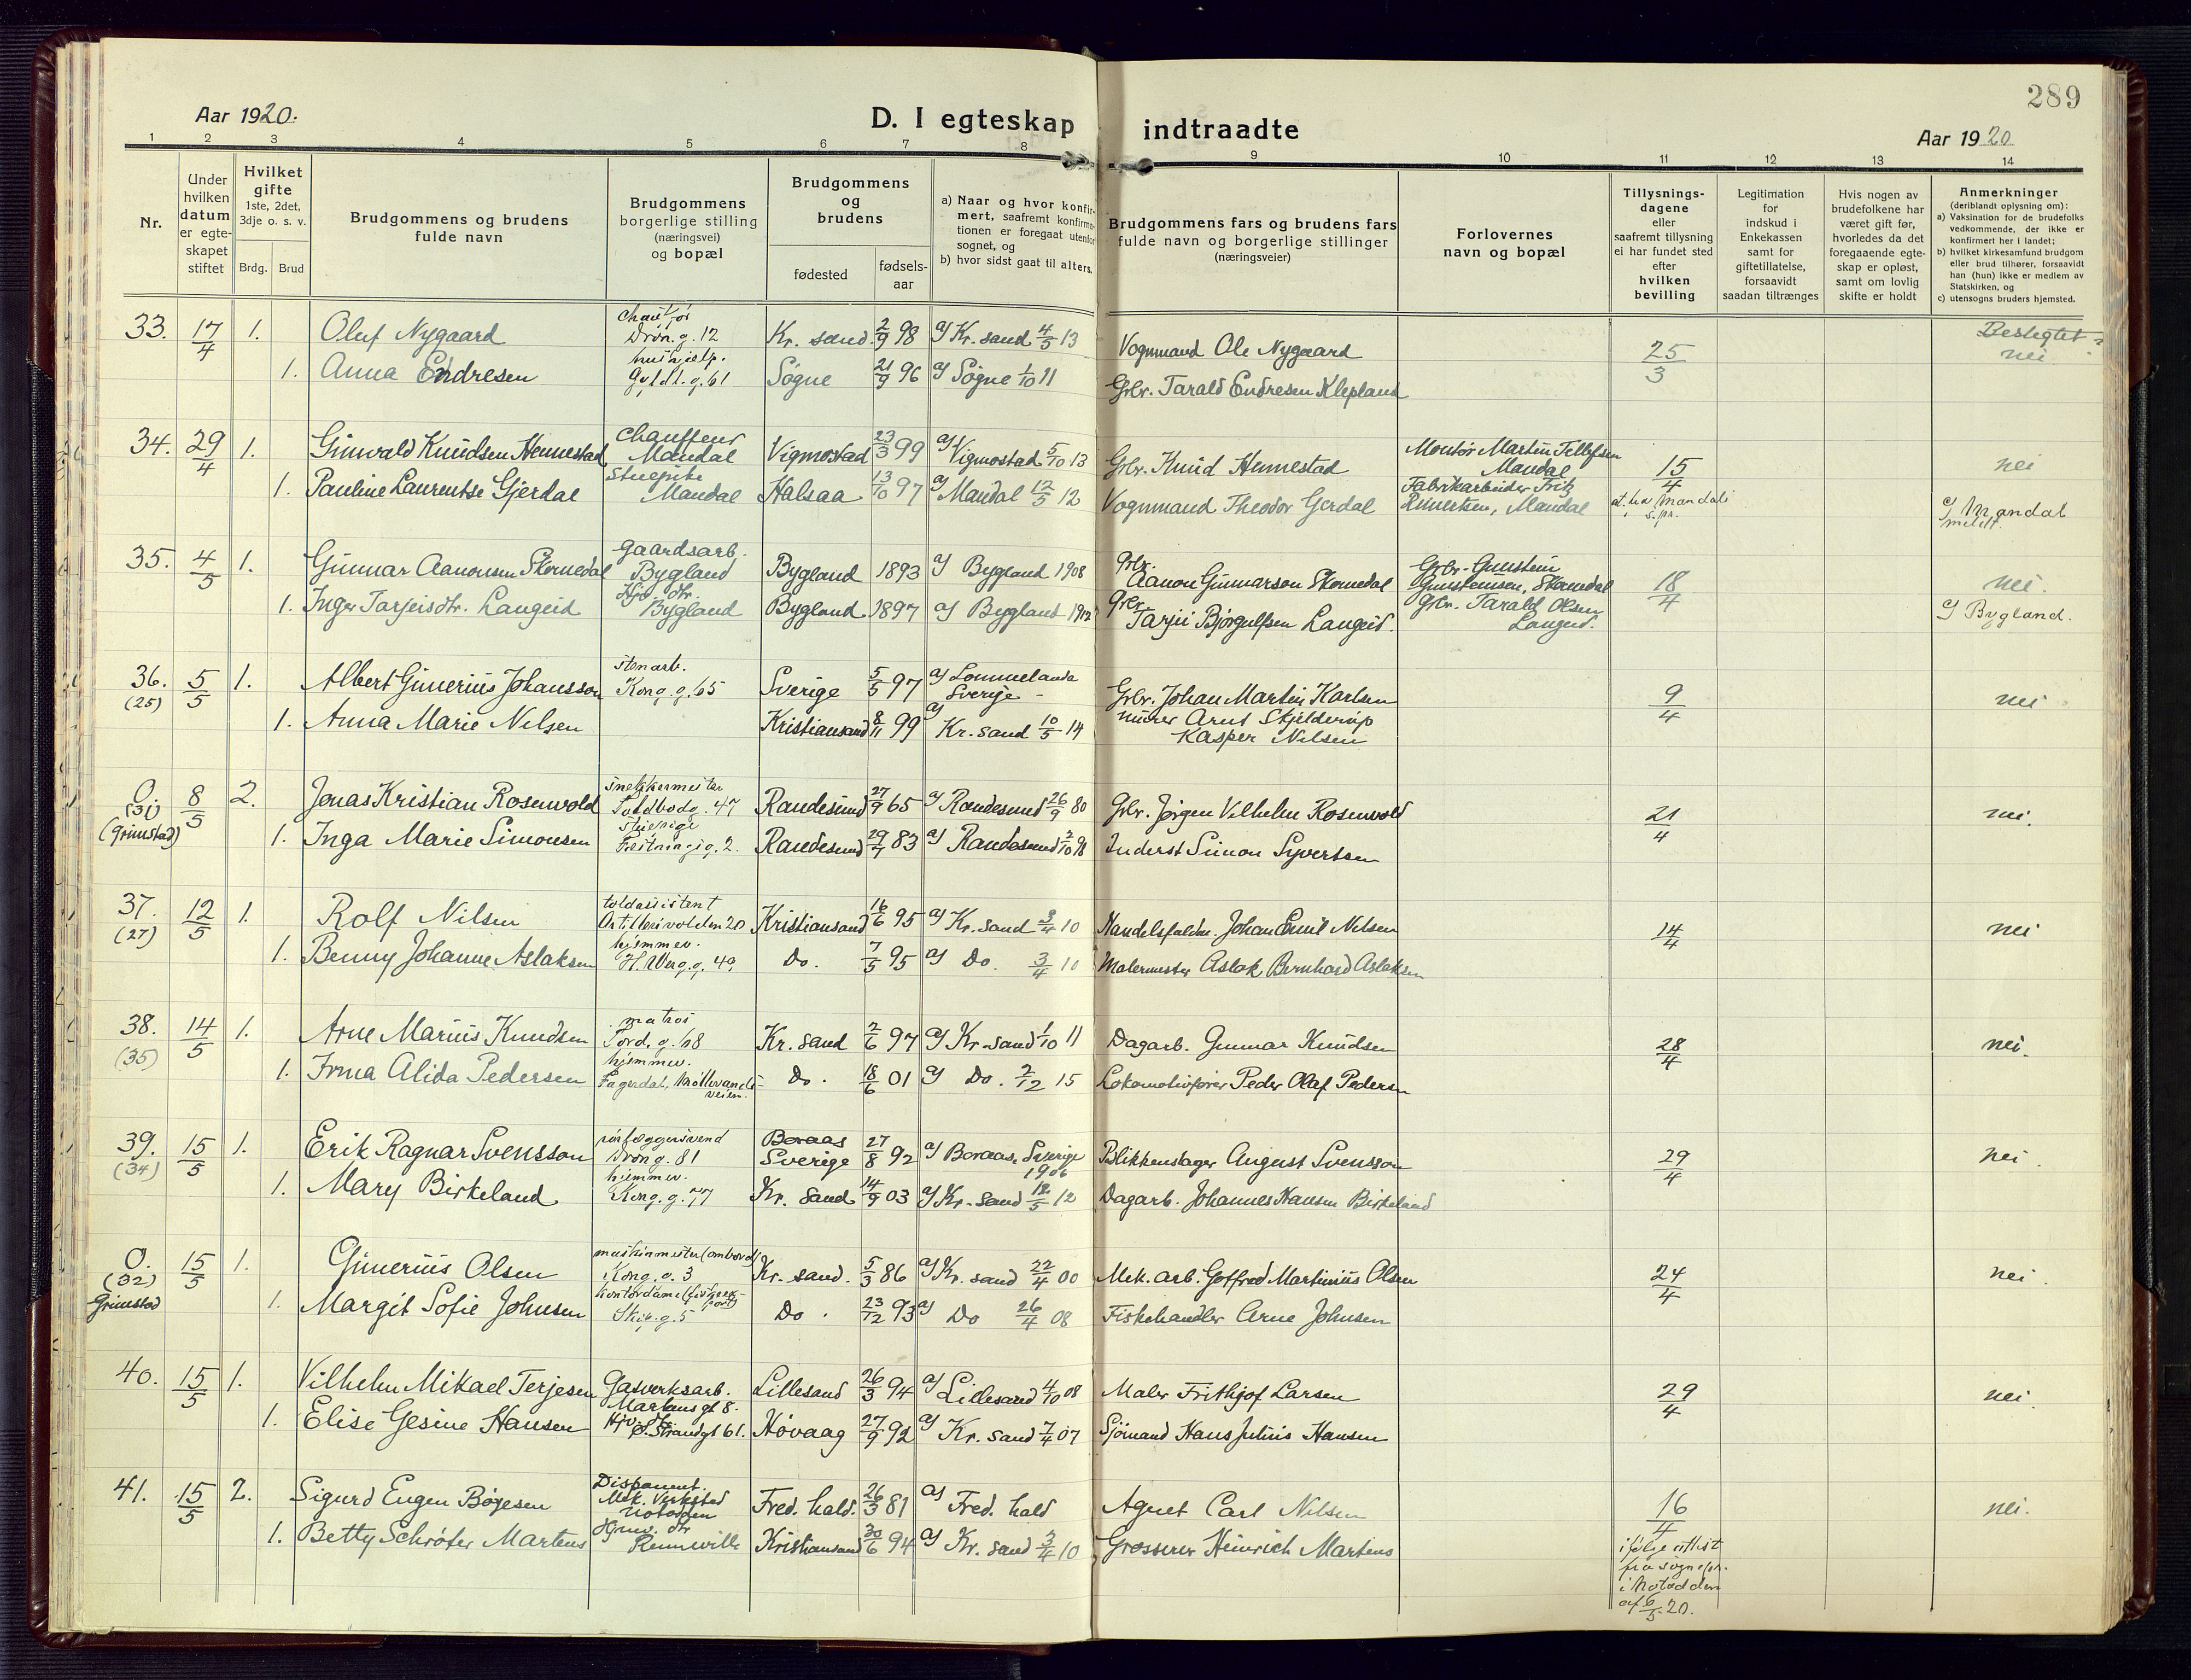 289
Aar 1920.
D. I egteskap indtraadte
Aar 1920
1 2 3 4 5 6 7 8 9 10 11 12 13 14
Nr.
Under hvilken datum er egte-skapet stiftet
Hvilket gifte 1ste, 2det, 3dje o. s. v.
Brdg. Brud
Brudgommens og brudens fulde navn
Brudgommens borgerlige stilling (næringsvei) og bopæl
Brudgommens og brudens
fødested
fødsels-aar
a) Naar og hvor konfir-mert, saafremt konfirma-tionen er foregaat utenfor sognet, og
b) hvor sidst gaat til alters.
Brudgommens fars og brudens fars fulde navn og borgerlige stillinger (næringsveier)
Forlovernes navn og bopæl
Tillysnings-dagene eller saafremt tillysning ei har fundet sted efter hvilken bevilling
Legitimation for indskud i Enkekassen samt for giftetillatelse, forsaavidt saadan tiltrænges
Hvis nogen av brudefolkene har været gift før, hvorledes da det foregaaende egte-skap er opløst, samt om lovlig skifte er holdt
Anmerkninger (deriblandt oplysning om):
a) Vaksination for de brudefolks vedkommende, der ikke er konfirmert her i landet;
b) hvilket kirkesamfund brudgom eller brud tilhører, forsaavidt han (hun) ikke er medlem av Statskirken, og
c) utensogns bruders hjemsted.
33. 17/4 1. Oluf Nygaard Drøn.g. 12 Kr. sand. 2/9 98 a) Kr. sand 4/5 13 Vognmand Ole Nygaard 25/3 Beslegtet? nei
1. Anna Endresen hushjelp. Gyldl.g. 61 Søgne 21/9 96 a) Søgne 1/10 11 Grbr. Tarald Endresen Klepland
34. 29/4 1. Gunvald Knudsen Hennestad Chauffeur Mandal Vigmostad 23/3 99 a) Vigmostad 5/10 13 Grbr. Knud Hennestad Montør Martin Tellefsen Mandal 15/4 nei
1. Pauline Laurentse Gjerdal Stuepike Mandal Halsaa 13/10 97 a) Mandal 12/5 12 Vognmand Theodor Gjerdal Fabrikarbeider Fritz Mandal c) Mandal
35. 4/5 1. Gunnar Aanonsen Skomedal Gaardsarb. Bygland Bygland 1893 a) Bygland 1908 Grbr. Aanon Gunnarson Skomedal Grbr. Gunstein Gunsteinsen, Skomedal 18/4 nei.
1. Inger Tarjeisdtr. Langeid Hjv. dtr. Bygland Bygland 1897 a) Bygland 1912 Grbr. Tarjei Bjørgulfsen Langeid. Grbr. Tarald Olsen Langeid. c) Bygland.
36. (25) 5/5 1. Albert Gunerius Johansson stenarb. Kong.g. 65 Sverige 5/5 97 a) Lommelanda Sverige - Grbr. Johan Martin Karlsen 9/4 nei
1. Anna Marie Nilsen Kristiansand 8/11 99 a) Kr. sand 10/5 14 murer Arnt Skjelderup Kasper Nilsen
0. (31) (Grimstad) 8/5 2. Jonas Kristian Rosenvold snekkermester Toldbodg. 47 Randesund 27/9 65 a) Randesund 26/9 80 Grbr. Jørgen Vilhelm Rosenvold 21/4 nei.
1. Inga Marie Simonsen Festningsg. 2. Randesund 29/7 83 a) Randesund 2/10 98 Inderst Simon Syvertsen
37. (27) 12/5 1. Rolf Nilsen toldassistent Artillerivolden 20 Kristiansand 16/6 95 a) Kr. sand 3/4 10 Handelsfuldm. Johan Emil Nilsen 14/4 nei
1. Benny Johanne Aslaksen hjemmev. H. Werg.g. 49, Do. 7/5 95 a) Do. 3/4 10 Malermester Aslak Bernhard Aslaksen
38. (35) 14/5 1. Arne Marius Knudsen matros Tord.g. 68 Kr. sand 2/6 97 a) Kr. sand 1/10 11 Dagarb. Gunnar Knudsen 28/4 nei.
1. Irma Alida Pedersen hjemmev. Fagerdal, Møllevands-veien. Do. 18/6 01 a) Do. 2/12 15 Lokomotivfører Peder Olaf Pedersen
39. (34) 15/5 1. Erik Ragnar Svensson rørlæggersvend Drøn.g. 81 Boraas Sverige 27/8 92 a) Boraas, Sverige 1906 Blikkenslager August Svensson 29/4 nei.
1. Mary Birkeland hjemmev. Kong.g. 77 Kr. sand 14/9 03 a) Kr. sand 12/5 12 Dagarb. Johannes Hansen Birkeland
0. (32) Grimstad 15/5 1. Gunerius Olsen maskinmester (ombord) Kong.g. 3 Kr. sand. 5/3 86 a) Kr. sand 22/4 00 Mek. arb. Gotfred Martinius Olsen 24/4 nei.
1. Margit Sofie Johnsen kontordame Skip.g. 5 Do. 23/12 93 a) Do 26/4 08 Fiskehandler Arne Johnsen
40. 15/5 1. Vilhelm Mikael Terjesen Gasverksarb. Martensgt 8. Lillesand 26/3 94 a) Lillesand 4/10 08 Maler Frithjof Larsen 29/4 nei.
1. Elise Gesine Hansen Hjv. dtr. Ø. Strandgt 61. Høvaag 27/9 92 a) Kr. sand 7/4 07 Sjømand Hans Julius Hansen
41. 15/5 2. Sigurd Eugen Børjesen Disponent Mek. Verksted Notodden Fred. hald. 26/3 81 a) Fred. hald Agent Carl Nilsen 16/4 nei.
1. Betty Schrøter Martens Hjmv. dtr Kristiansand 30/6 94 a) Kr. sand 3/4 10 Grosserer Heinrich Martens ifølge attest fra sognepr. i Notodden af 6/5 20.